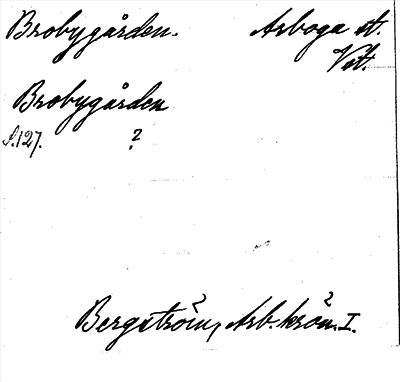 Brobygården. Arboga st.
Vstl.
Brobygården
S.127. ?
Bergström, Arb. krön. I.